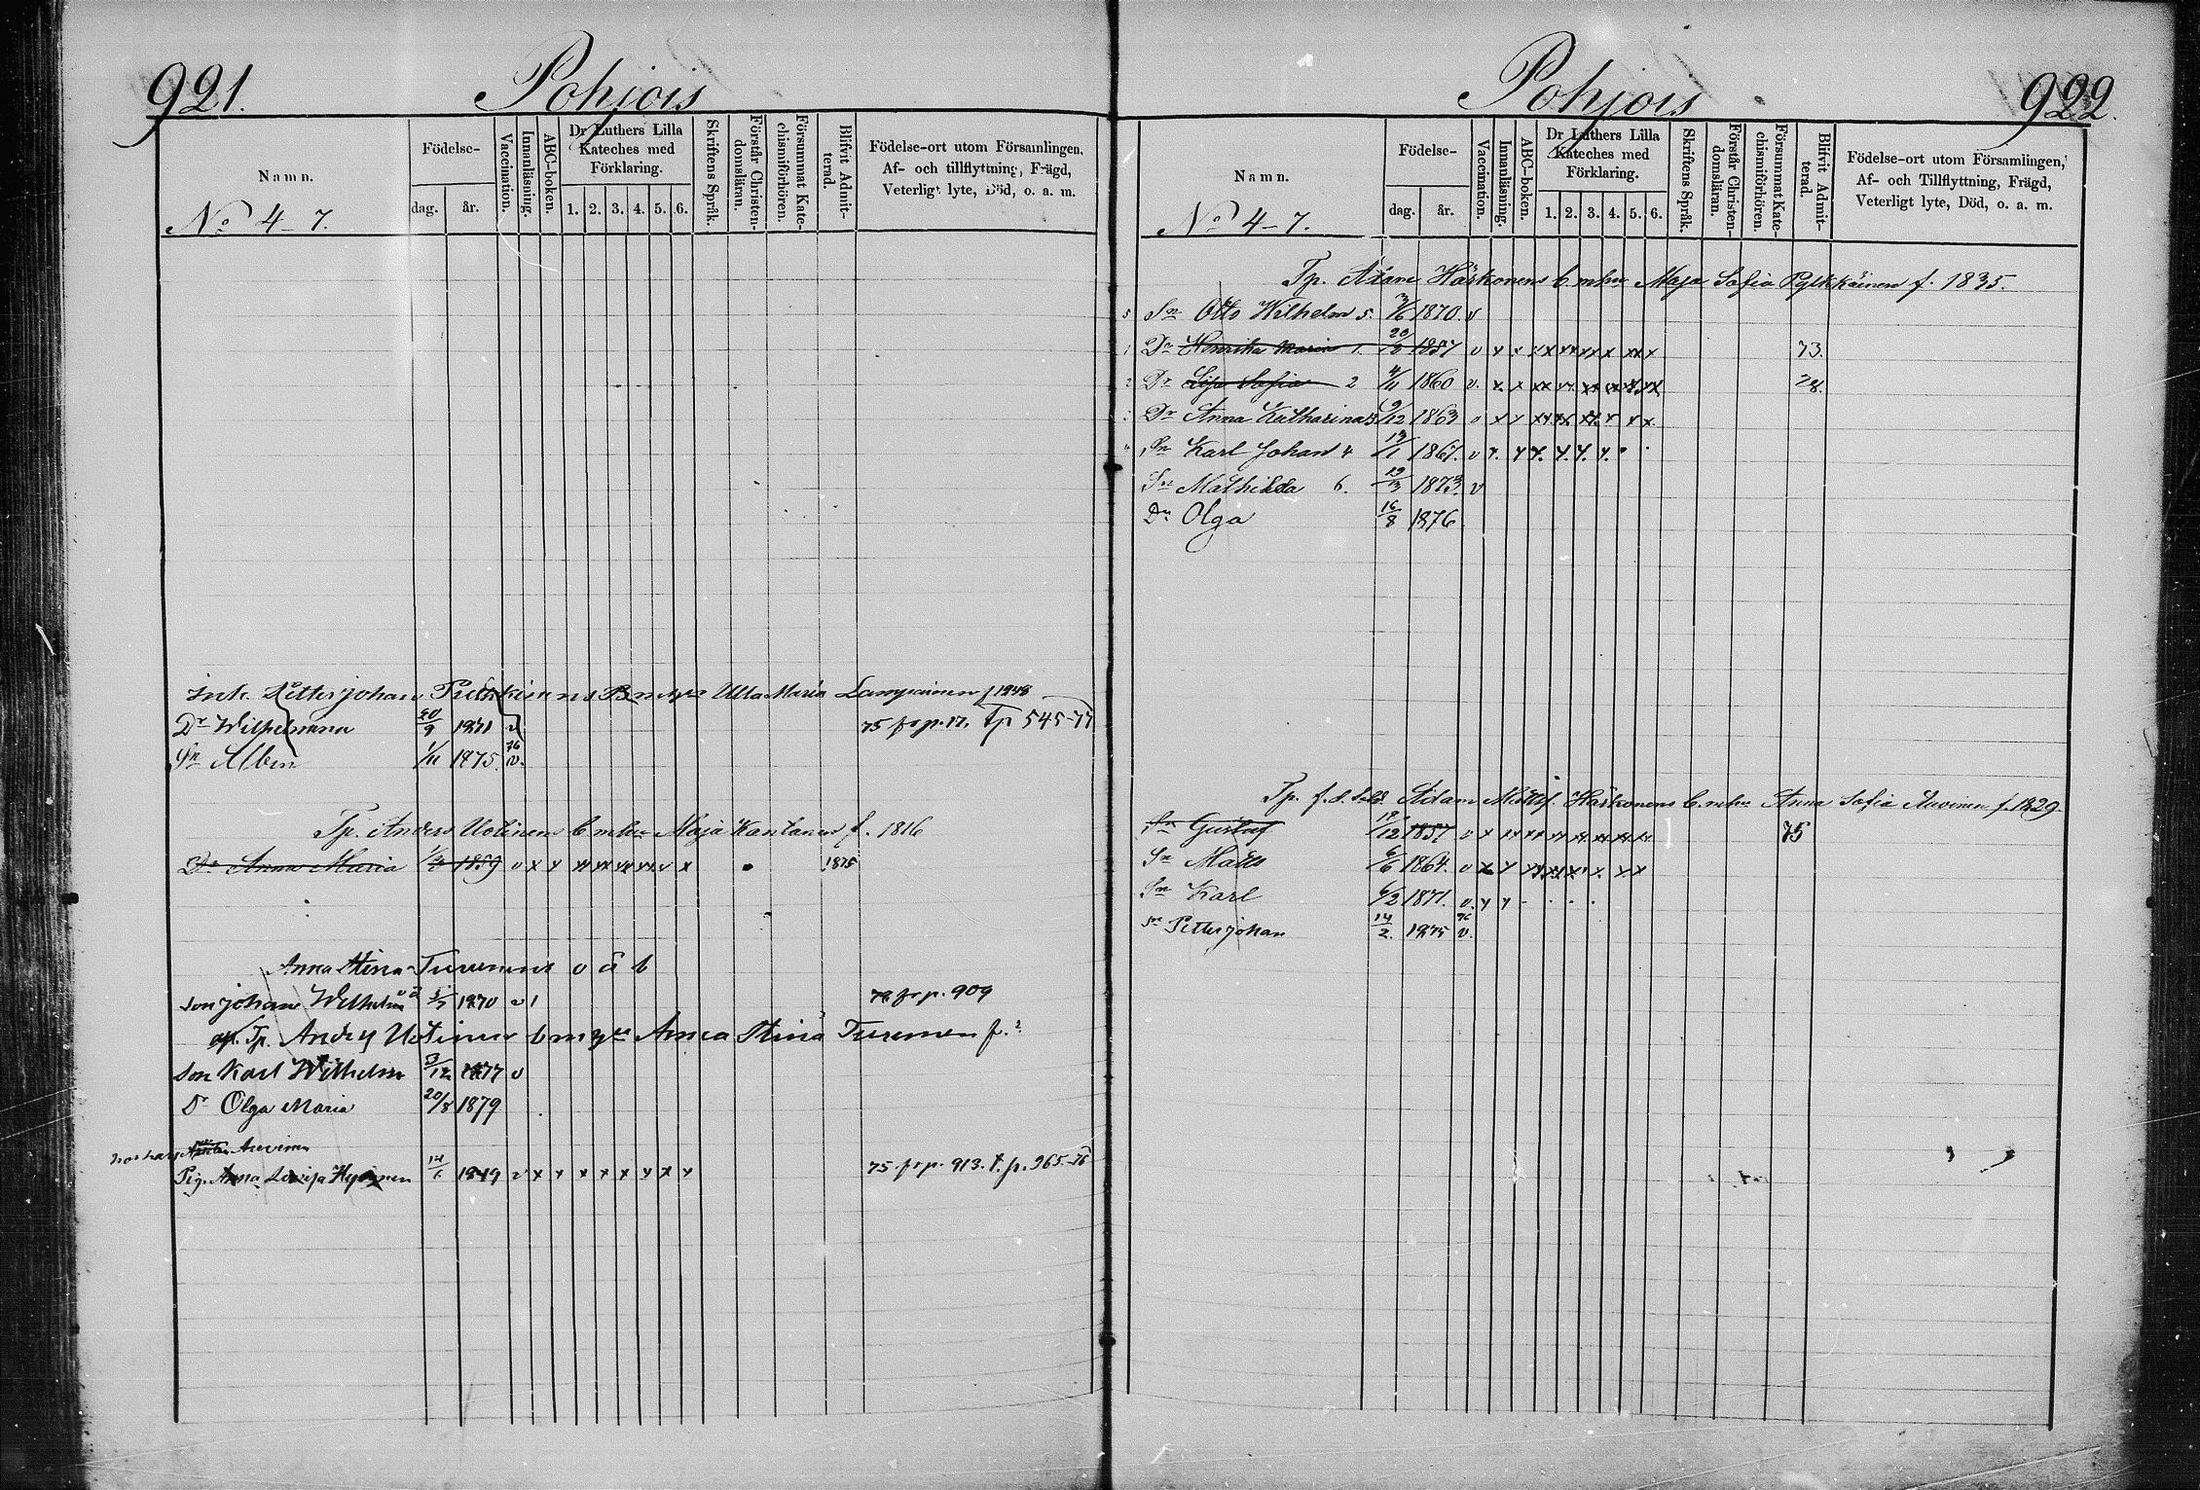 921.
Pohjois
Namn.
Födelse-
dag.
år.
Vaccination.
Innanläsning.
ABC-boken.
Dr Luthers Lilla
Kateches med
Förklaring.
1. 2. 3. 4. 5. 6.
Skriftens Språk.
Förstår Christen-
domsläran.
Försummat Kate-
chismiförhören.
Blifvit Admit-
terad.
Födelse-ort utom Församlingen,
Af- och tillflyttning, Frägd,
Veterligt lyte, Död, o. a. m.
No 4-7.
Petter Johan Ulla Maria Lampainen f 1848
Dr Wilhelmina 20/9 1871 v 75 fr p. 17. Tp 545-77
Sn Albin 1/11 1875. 76 v.
Tp. Anders Uotinens b. mhu Maja Kantanen f. 1816
Dr Anna Maria 1859 v x x x x x x v x 1875
Anna Stina Turunens o ä b
son Johan Wilhelm 1870 v 1 fr p. 909
Tp. Anders Uotinens b m Anna Stina Turunen f.
son Karl Wilhelm 3/12 1877 v
Dr Olga Maria 20/8 1879
Auvinen
Pig. Anna Lovisa 14/6 1849 v x x x x x x x x 75 fr p. 913. t. p. 965-76
922.
Pohjois
Namn.
Födelse-
dag.
år.
Vaccination.
Innanläsning.
ABC-boken.
Dr Luthers Lilla
Kateches med
Förklaring.
1. 2. 3. 4. 5. 6.
Skriftens Språk.
Förstår Christen-
domsläran.
Försummat Kate-
chismiförhören.
Blifvit Admit-
terad.
Födelse-ort utom Församlingen,
Af- och Tillflyttning, Frägd,
Veterligt lyte, Död, o. a. m.
No 4-7.
Tp. Adam Härkonens b. mhu Maja Sofia Pylkkäinen f. 1835.
5 Sn Otto Wilhelm 5. 3/6 1870. v
1 Dr Henrika Maria 1. 1857 v x x x x x x x x x x 73.
2 Dr Lisa Sofia 2 4/11 1860 v. x. x xx xx xx xx x xx 78.
3 Dr Anna Katharina 3 9/12 1863 v x x xx xx xx x x x.
4 Sn Karl Johan 4 13/1 1867. v x. x x. x. x. x.
Dr Mathilda 6. 19/3 1873. v
Dr Olga 16/8 1876
Tp. f. d. Sold. Adam Matts. Härkonens b. mhu Anna Sofia Auvinen f. 1829.
Sn Gustaf 1857 v x xx xx xx xx xx xx 75
Sn Matts 6/6 1864. v x x xx xx x x. x x
Sn Karl 6/2 1871. v. x x
Sn Petter Johan 14/2. 1875 76 v.